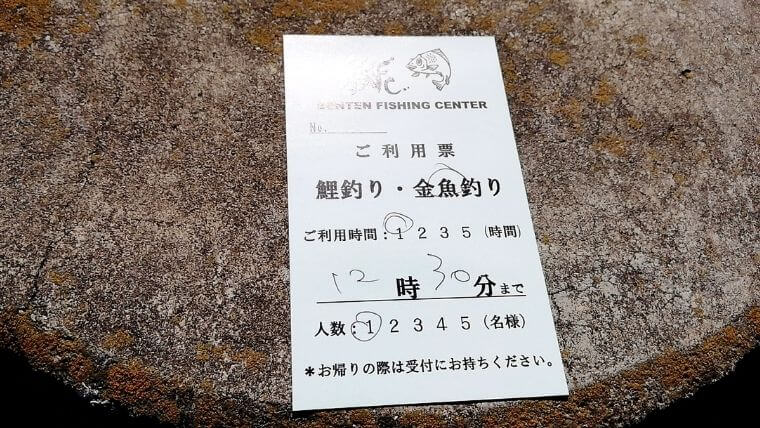 BENTEN FISHING CENTER
No.
ご利用票
鯉釣り・金魚釣り
ご利用時間:1 2 3 5 (時間)
12時30分まで
人数:1 2 3 4 5 (名様)
*お帰りの際は受付にお持ちください。